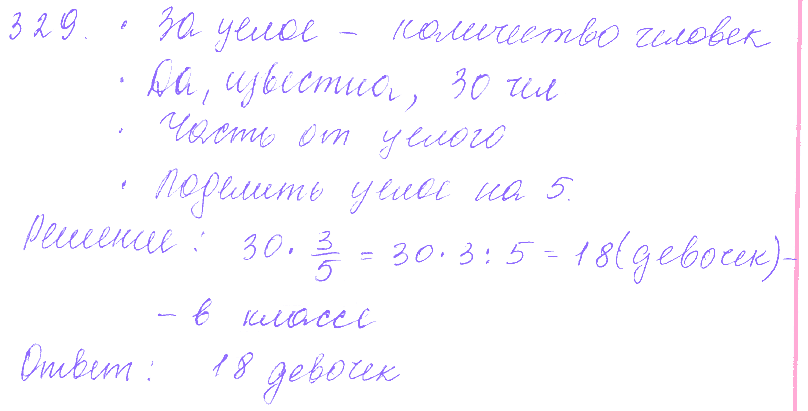 329. • За целое – количество человек
• Да, известна, 30 чел
• Часть от целого
• Поделить целое на 5.
Решение: 30 · 3/5 = 30 · 3 : 5 = 18 (девочек) –
– в классе
Ответ: 18 девочек